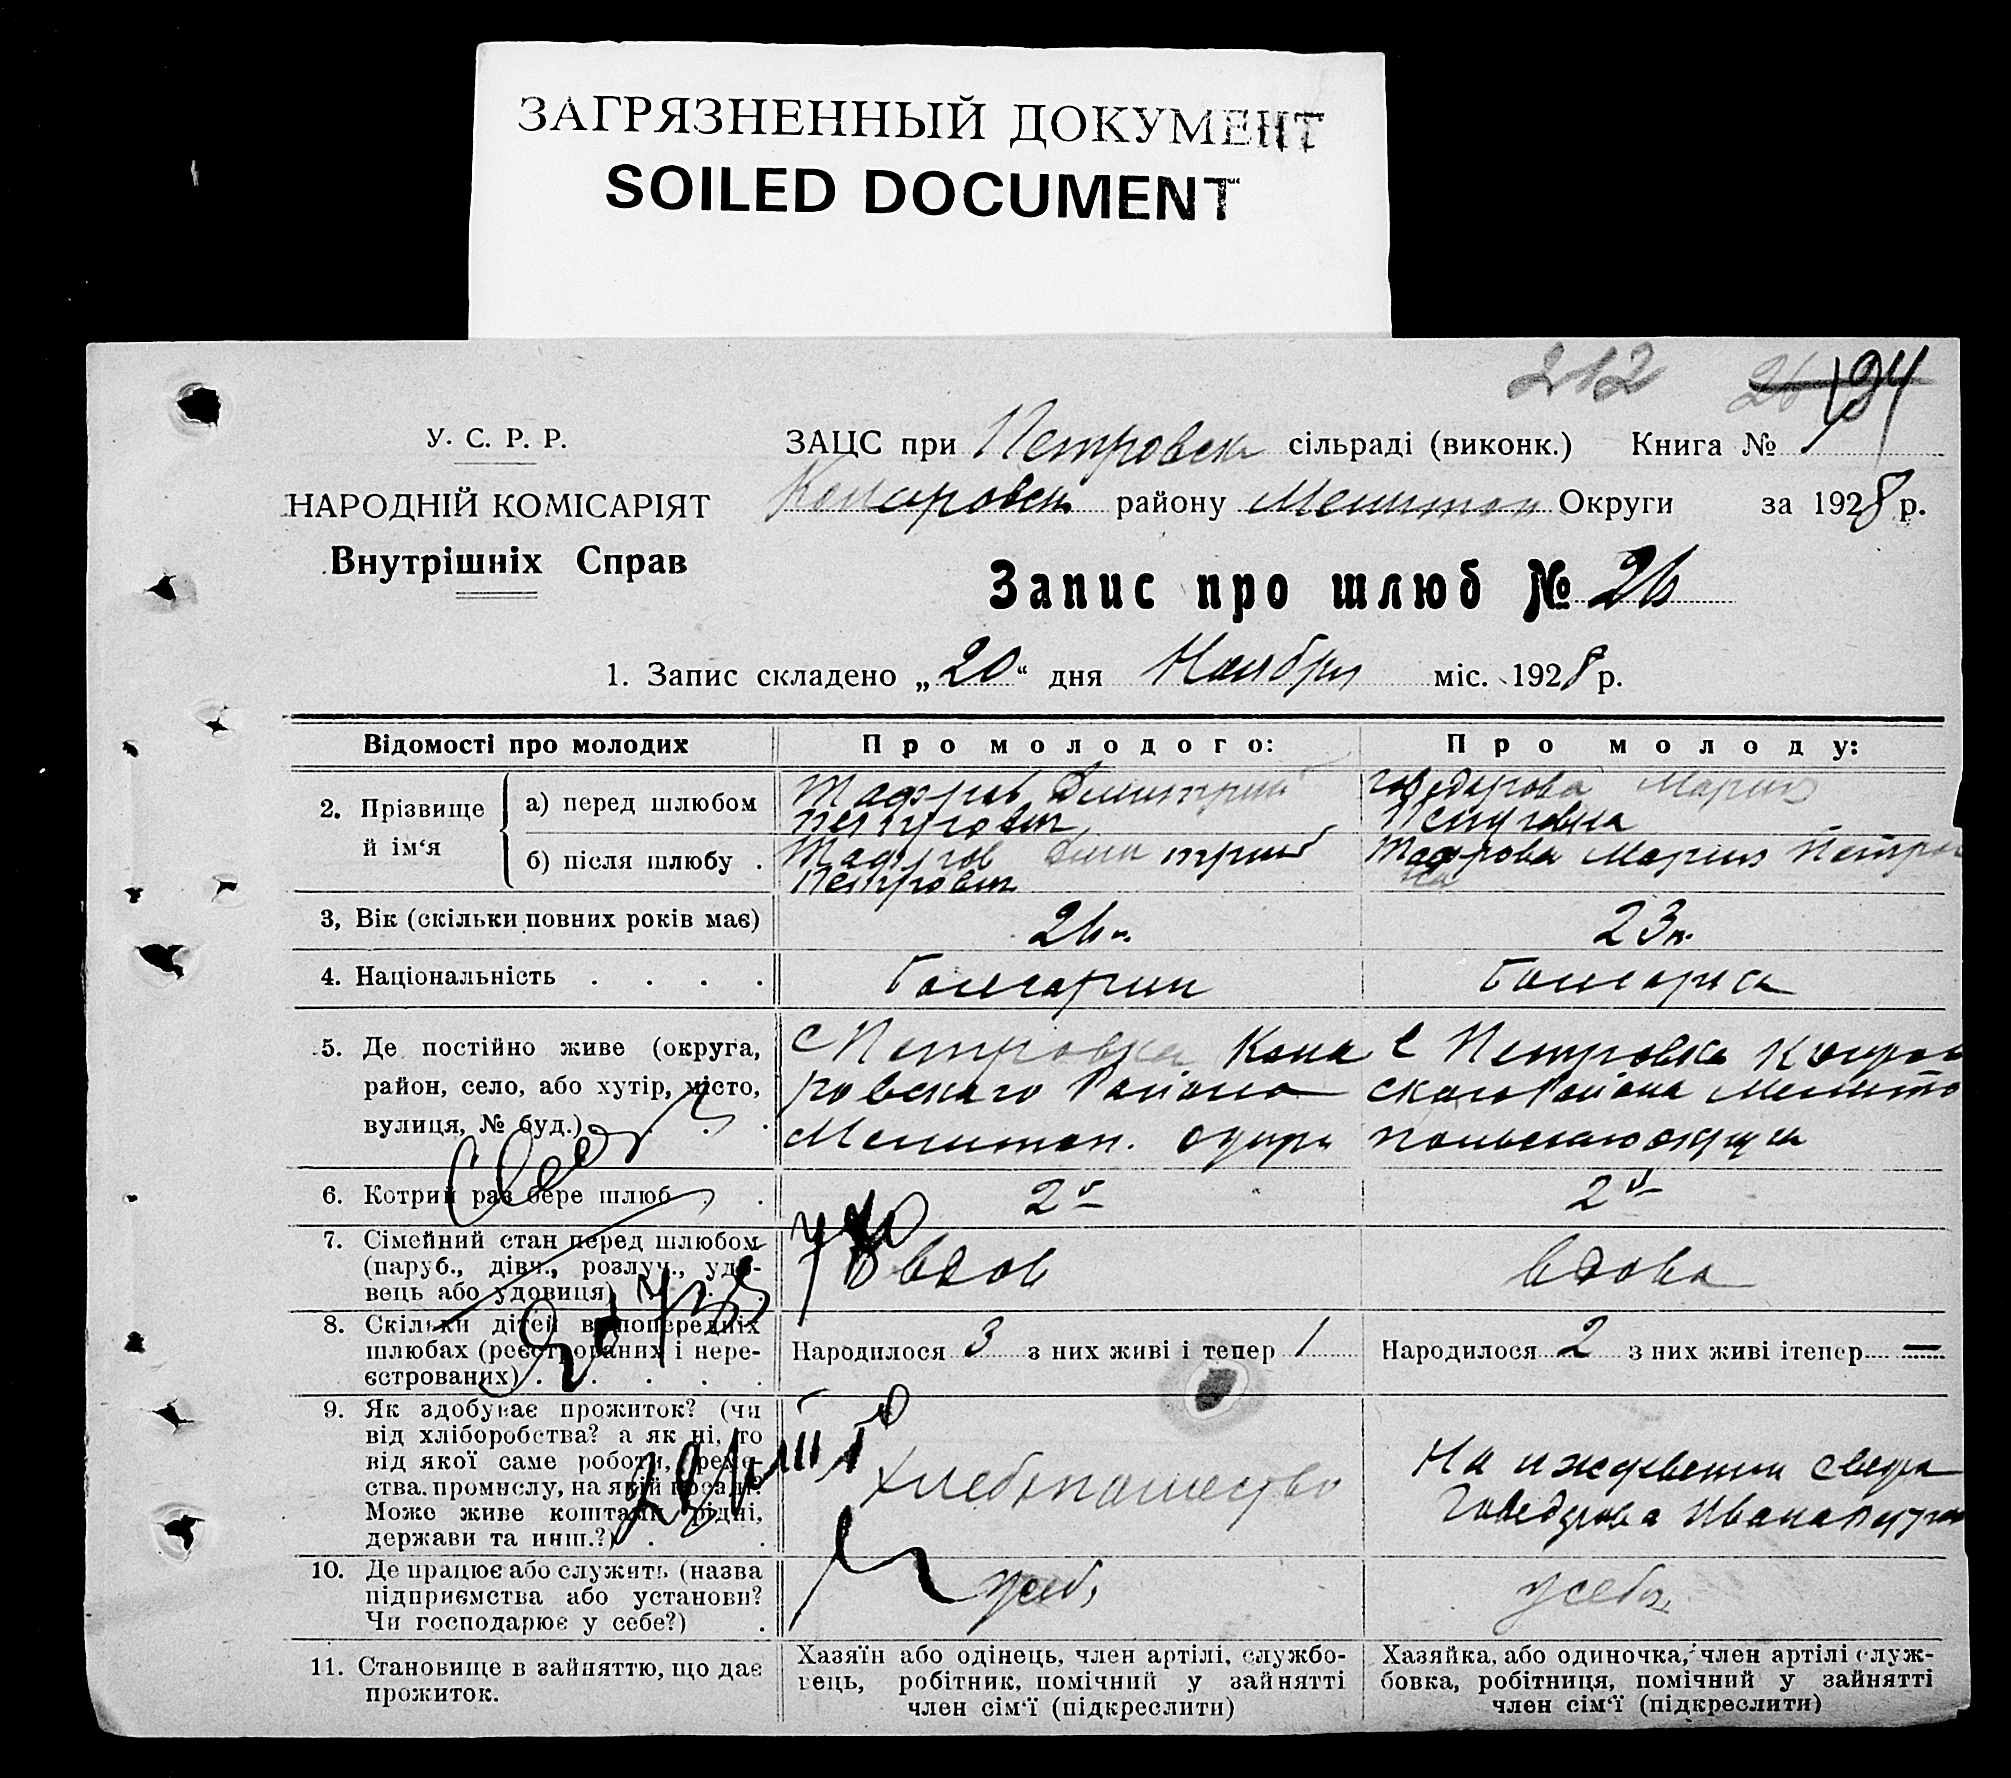 ЗАГРЯЗНЕННЫЙ ДОКУМЕНТ
SOILED DOCUMENT
212 26 194
У. С. Р. Р.
НАРОДНІЙ КОМІСАРІЯТ
Внутрішніх Справ
ЗАЦС при Петровск сільраді (виконк.) Книга №
району Округи за 1928 р.
Запис про шлюб № 26
1. Запис складено „20“ дня Ноября міс. 1928 р.
Відомості про молодих
Про молодого:
Про молоду:
2. Прізвище й ім‘я
а) перед шлюбом
Димитрий
Петрович
Мария
Петровна
б) після шлюбу .
Димитрий
Петрович
Мария Петров
на
3, Вік (скільки повних років має)
26 л.
23 л.
4. Національність . . . .
болгарин
болгарка
5. Де постійно живе (округа,
район, село, або хутір, місто,
вулиця, № буд.) . . .
с Петровка Кона
ровскаго Района
Мелитоп. округи
с Петровка
скаго Района Мелито
польского округа
6. Котрий раз бере шлюб . .
2й
2й
7. Сімейний стан перед шлюбом
(паруб., дівч., розлуч., удо-
вець або удовиця) . . .
вдов
вдова
8. Скільки дітей в попередніх
шлюбах (реєстрованих і нере-
єстрованих) . . . . .
Народилося 3 з них живі і тепер 1
Народилося 2 з них живі ітепер —
9. Як здобуває прожиток? (чи
від хліборобства? а як ні, то
від якої саме роботи, реме-
ства, промислу, на якій посаді?
Може живе коштами рідні,
держави та инш.?) . .
хлебопашество
На иждевении свекра
Ивана
10. Де працює або служить (назва
підприємства або установи?
Чи господарює у себе?) .
у себя
у себя
11. Становище в зайняттю, що дає
прожиток.
Хазяїн або одінець, член артілі, службо-
вець, робітник, помічний у зайнятті
член сім‘ї (підкреслити)
Хазяйка, або одиночка, член артілі служ-
бовка, робітниця, помічний у зайнятті
член сім‘ї (підкреслити)